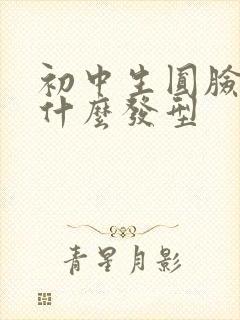 初中生圓臉
什麼發型
青星月影